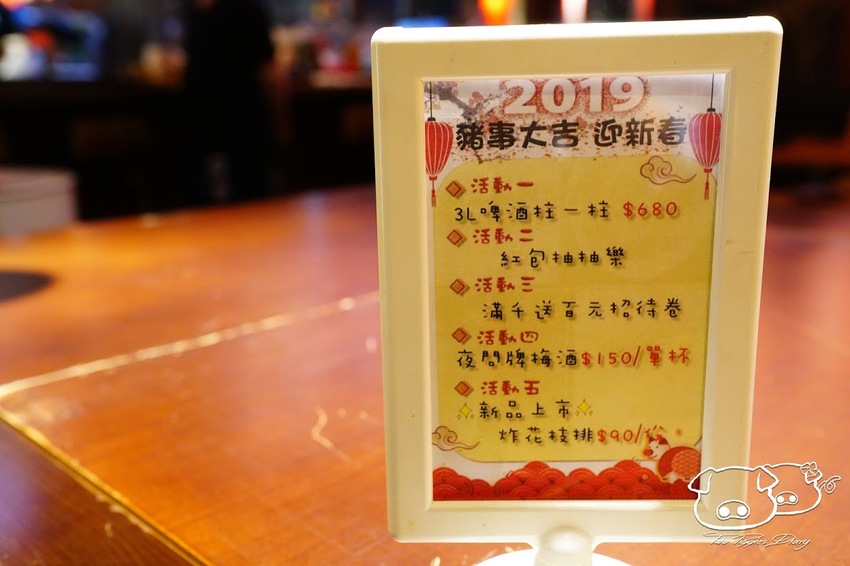 2019
豬事大吉 迎新春
活動一
3L啤酒柱一柱 $680
活動二
紅包抽抽樂
活動三
滿千送百元招待卷
活動四
夜問牌梅酒$150/單杯
活動五
新品上市
炸花枝排$90/份
Two Piggies Diary